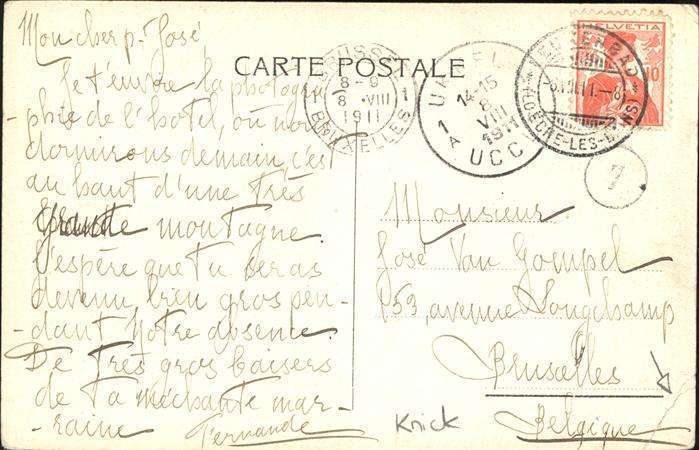 Mon cher p. José
CARTE POSTALE
Je t'envoie la photogra
phie de l'hotel, où nous
dormirons demain, c'est
au haut d'une très
montagne.
J'espère que tu seras
devenu bien gros pen-
-dant notre absence.
De très gros baisers
de ta méchante mar-
raine Fernande
BRUSSEL
8-9
1 8 VIII 1
1911
BRUXELLES
UKKEL
14-15
8
VIII
1911
1A
UCCLE
LEUKERBAD
(LOECHE-LES-BAINS)
HELVETIA
10
7
Monsieur
José Van Gompel
153, avenue Longchamp
Bruxelles
Belgique
Knick